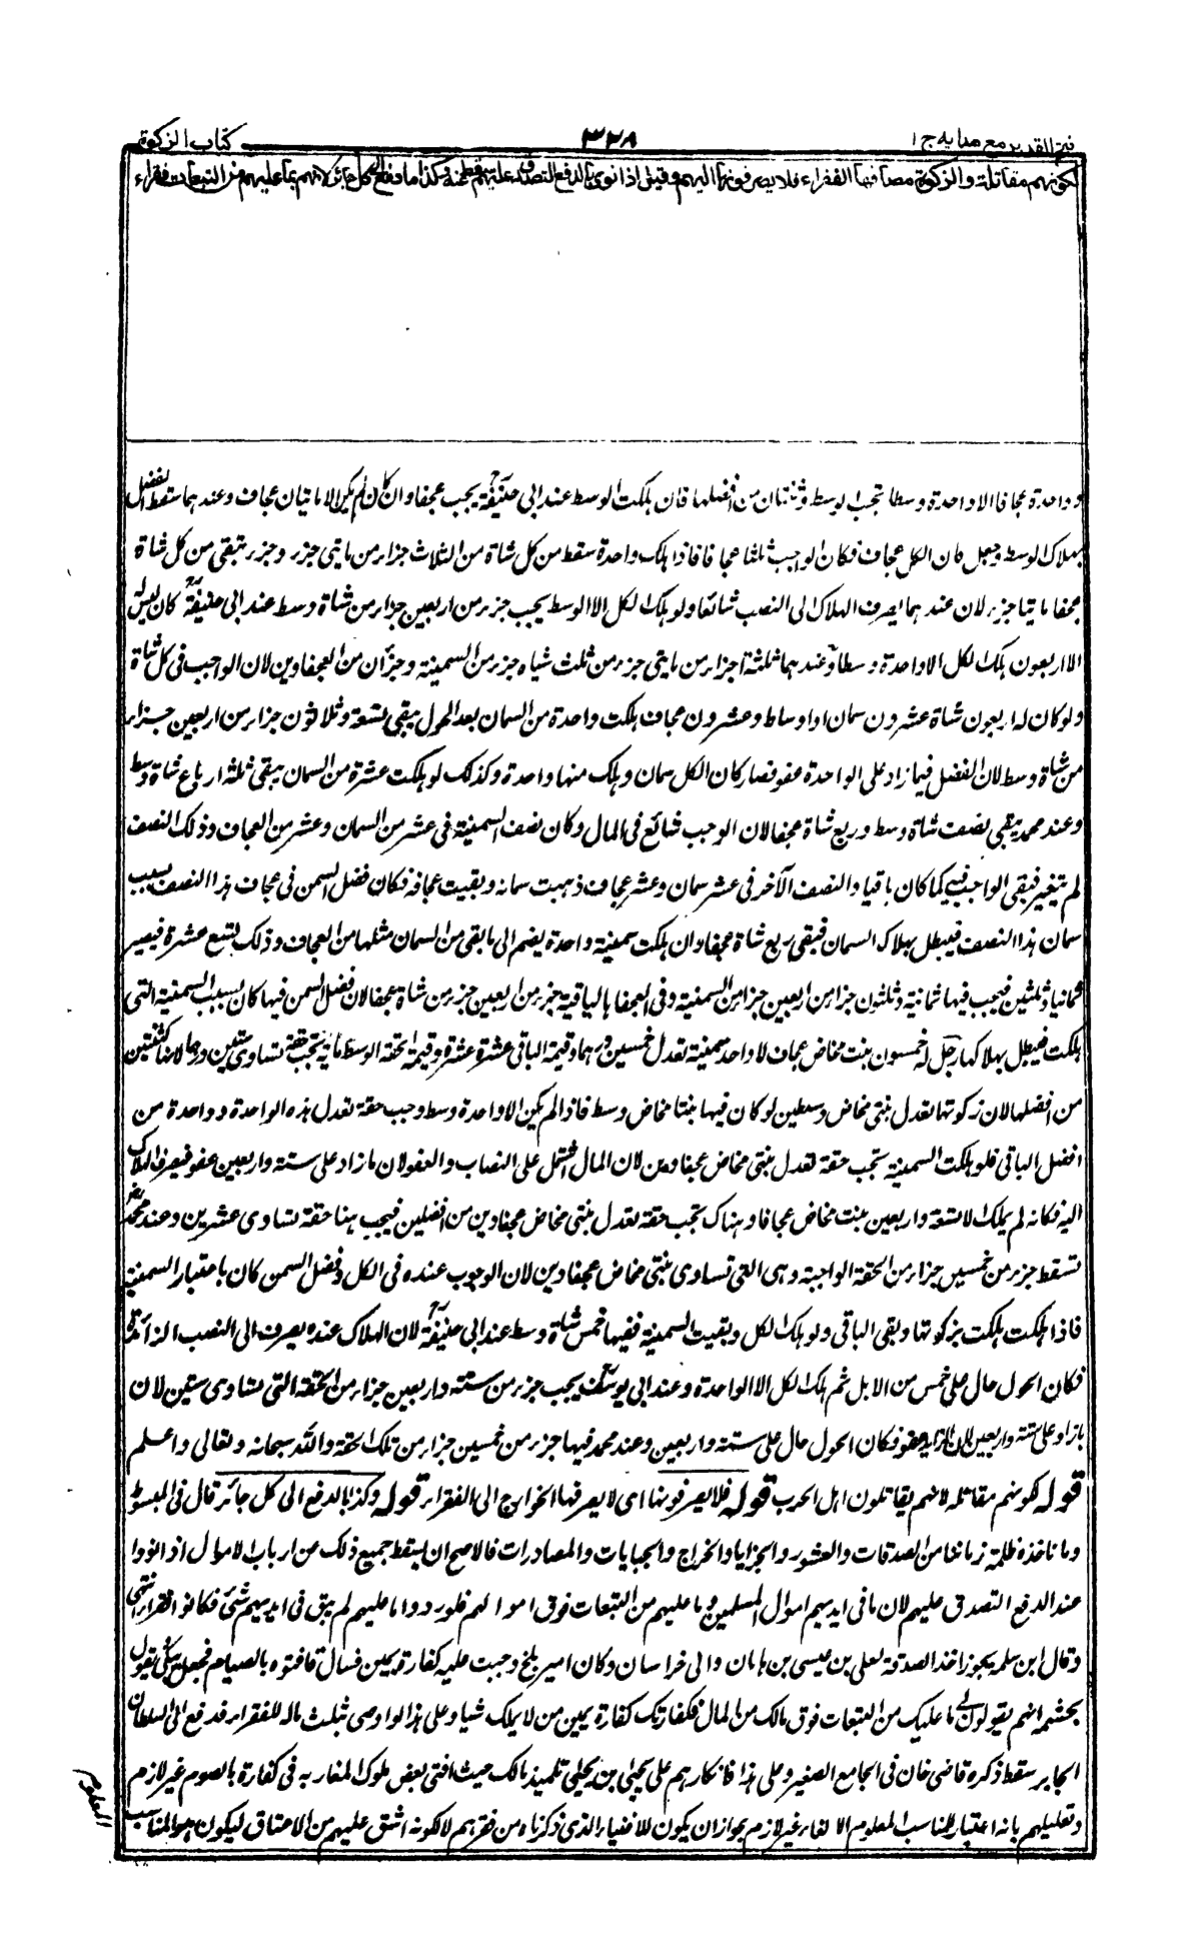 فتح القدير مع هدايه ج ١
٣٢٨
كتاب الزكوة
لكونهم مقاتلة والزكوة مصرفها الفقراء فلا يصرفونها اليهم وقيل اذا نوى بالدفع التصدق عليهم سقط عنه وكذا ما دفع الى كل جائر لانهم بما عليهم من التبعات فقراء
وواحدة عجافا الا واحدة وسطا تجب الوسط وثنتان من افضلها فان هلكت الوسط عند ابى حنيفة يجب عجفاوان كان لم يكن الا مايتان عجاف وعندهما سقط الفضل
بهلاك الوسط فجعل كان الكل عجاف فكان الواجب ثلثا عجافا فاذا هلك واحدة سقط من كل شاة من الثلاث جزء من مايتى جزء وجزء تبقى من كل شاة
عجفا مايتا جزء لان عندهما يصرف الهلاك الى النصب شائعا ولو هلك الكل الا الوسط يجب جزء من اربعين جزء من شاة وسط عند ابى حنيفة كان ليس له
الا اربعون هلك الكل الا واحدة وسطا وعندهما ثلثة اجزاء من مايتى جزء من ثلث شياه جزء من السمينة وجزان من العجفاوين لان الواجب فى كل شاة
ولو كان له اربعون شاة عشرون سمان او اوساط وعشرون عجاف هلكت واحدة من السمان بعد الحول يبقى تسعة وثلاثون جزء من اربعين جزء
من شاة وسط لان الفضل فيما زاد على الواحدة عفو فصار كان الكل سمان وهلك منها واحدة وكذلك لو هلكت عشرة من السمان يبقى ثلثة ارباع شاة وسط
وعند محمد يبقى نصف شاة وسط وربع شاة عجفا لان الوجب شائع فى المال وكان نصف السمينة فى عشر من السمان وعشر من العجاف وذلك النصف
لم يتغير فبقى الواجب فيه كما كان باقيا والنصف الآخر فى عشر سمان وعشر عجاف ذهبت سمانه وبقيت عجافه فكان فضل السمن فى عجاف هذا النصف بسبب
سمان هذا النصف فيبطل بهلاك السمان فبقى ربع شاة عجفا وان هلكت سمينة واحدة يضم الى ما بقى من السمان مثلها من العجاف وذلك تسع عشرة فيصير
ثمانيا وثلثين فيجب فيها ثمانية وثلثون جزء من اربعين جزء من السمينة وفى العجفا الباقية جزء من اربعين جزء من شاة عجفا لان فضل السمن فيها كان بسبب السمينة التى
هلكت فيبطل بهلاكها رجل له خمسون بنت مخاض عجاف الا واحدة سمينة تعدل خمسين درهما وقيمة الباقى عشرة عشرة وقيمة الحقة الوسط ماية تجب حقة تساوى ستين درهما لانها كثنتين
من افضلها لان زكوتها تعدل بنتى مخاض وسطين لو كان فيها بنتا مخاض وسط فاذا لم يكن الا واحدة وسط وجب حقة تعدل هذه الواحدة وواحدة من
افضل الباقى فلو هلكت السمينة تجب حقة تعدل بنتى مخاض عجفاوين لان المال اشتمل على النصاب والعفو لان ما زاد على ستة واربعين عفو فيصرف الهلاك
اليه فكانه لم يملك الا تسعة واربعين بنت مخاض عجافا وهناك تجب حقة تعدل بنتى مخاض عجفاوين من افضلهن فيجب هنا حقة تساوى عشرين وعند محمد
تسقط جزء من خمسين جزء من الحقة الواجبة وهى التى تساوى بنتى مخاض عجفاوين لان الوجوب عنده فى الكل وفضل السمن كان باعتبار السمينة
فاذا هلكت هلكت بزكوتها وبقى الباقى ولو هلك الكل وبقيت السمينة ففيها خمس شاة وسط عند ابى حنيفة لان الهلاك عنده يصرف الى النصب الزائدة
فكان الحول حال على خمس من الابل ثم هلك الكل الا الواحدة وعند ابى يوسف يجب جزء من ستة واربعين جزء من الحقة التى تساوى ستين لان
ما زاد على ستة واربعين عفو فكان الحول حال على ستة واربعين وعند محمد فيها جزء من خمسين جزء من تلك الحقة والله سبحانه وتعالى واعلم
قوله لكونهم مقاتلة لانهم يقاتلون اهل الحرب قوله فلا يصرفونها اى لا يصرفها الخوارج الى الفقراء قوله وكذا بالدفع الى كل جائر قال فى المبسوط
وما ناخذه ظلمة زماننا من الصدقات والعشور والجزايا والخراج والجبايات والمصادرات فالاصح ان يسقط جميع ذلك من ارباب الاموال اذا نووا
عند الدفع التصدق عليهم لان ما فى ايديهم اموال المسلمين وما عليهم من التبعات فوق اموالهم فلو ردوا ما عليهم لم يبق فى ايديهم شئ فكانوا فقراء انتهى
وقال ابن سلمه يجوز اخذ الصدقة لعلى بن عيسى بن ماهان والى خراسان وكان امير بلخ وجبت عليه كفارة يمين فسال فافتوه بالصيام فجعل يبكى ويقول
لحشمه انهم يقولون لى ما عليك من التبعات فوق مالك من المال فكفارتك كفارة يمين من لا يملك شيا وعلى هذا لو اوصى بثلث ماله للفقراء فدفع الى السلطان
الجابر سقط ذكره قاضى خان فى الجامع الصغير وعلى هذا فانكارهم على يحيى بن يحيى تلميذ مالك حيث افتى بعض ملوك المغاربه فى كفارة بالصوم غير لازم
وتعليلهم بانه اعتبار للمناسب المعلوم الالغاء غير لازم لجواز ان يكون للاعتبار الذى ذكرناه من فقرهم لا لكونه اشق عليهم من الاعتاق ليكون هو المناسب
المعلوم